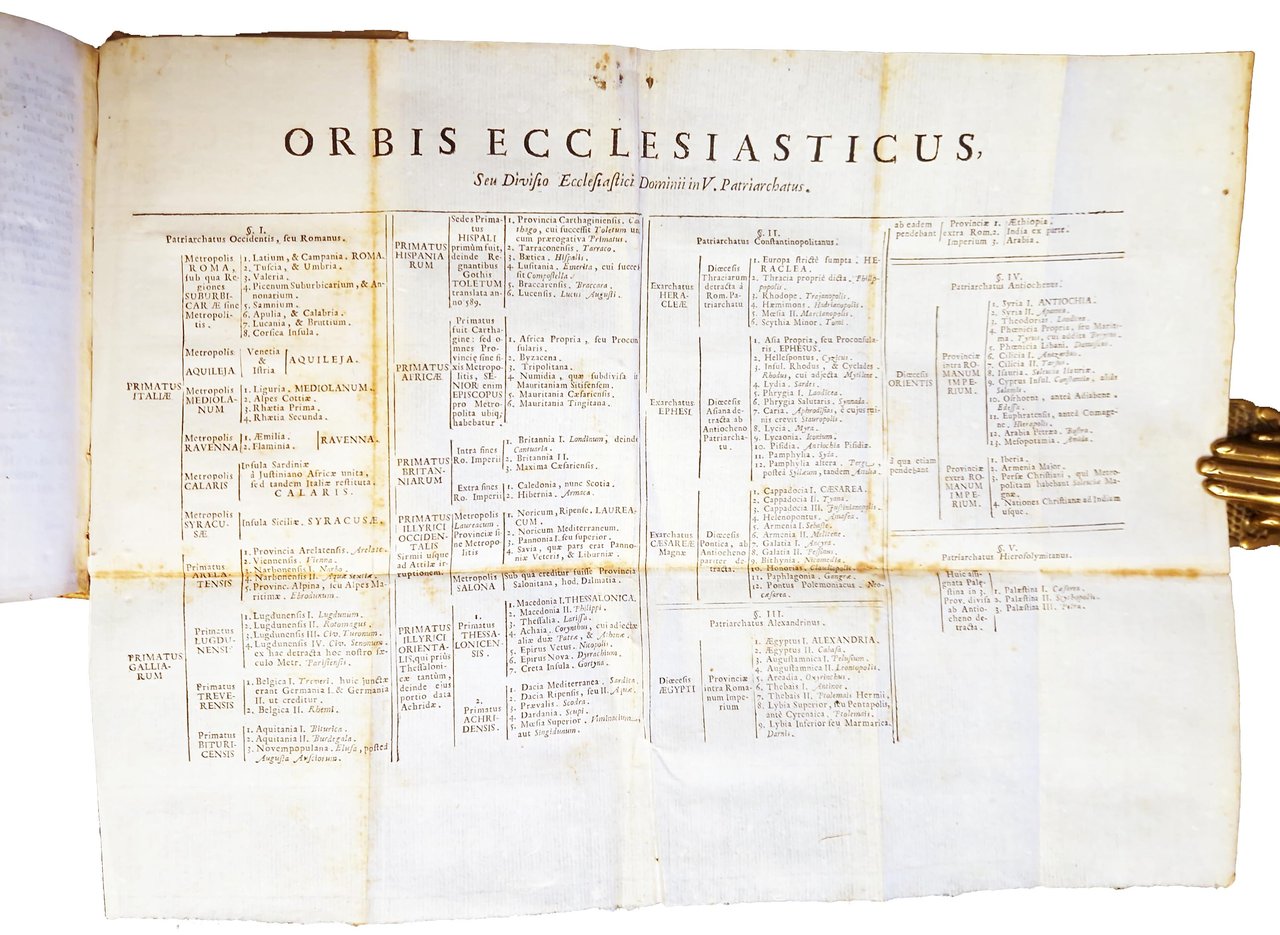 ORBIS ECCLESIASTICUS,
Seu Divisio Ecclesiastici Dominii in V. Patriarchatus.
§. I.
Patriarchatus Occidentis, seu Romanus.
PRIMATUS
ITALIÆ
Metropolis
ROMA,
sub qua Re-
giones
SUBURBI-
CARÆ sine
Metropoli-
tis.
1. Latium, & Campania. ROMA.
2. Tuscia, & Umbria.
3. Valeria.
4. Picenum Suburbicarium, & An-
nonarium.
5. Samnium.
6. Apulia, & Calabria.
7. Lucania, & Bruttium.
8. Corsica Insula.
Metropolis
AQUILEJA
Venetia
&
Istria
AQUILEJA.
Metropolis
MEDIOLA-
NUM
1. Liguria, MEDIOLANUM.
2. Alpes Cottiæ.
3. Rhætia Prima.
4. Rhætia Secunda.
Metropolis
RAVENNA
1. Æmilia.
2. Flaminia.
RAVENNA.
Metropolis
CALARIS
Insula Sardiniæ
à Justiniano Africæ unita,
sed tandem Italiæ restituta.
CALARIS.
Metropolis
SYRACU-
SÆ
Insula Siciliæ, SYRACUSÆ.
PRIMATUS
GALLIA-
RUM
Primatus
ARELA-
TENSIS
1. Provincia Arelatensis. Arelate.
2. Viennensis. Vienna.
3. Narbonensis I. Narbo.
4. Narbonensis II. Aquæ Sextiæ.
5. Provinc. Alpina, seu Alpes Ma-
ritimæ. Ebrodunum.
Primatus
LUGDU-
NENSI
1. Lugdunensis I. Lugdunum.
2. Lugdunensis II. Rotomagus.
3. Lugdunensis III. Civ. Turonum.
4. Lugdunensis IV. Civ. Senonum.
ex hac detracta hoc nostro sæ-
culo Metr. Parisiensis.
Primatus
TREVE-
RENSIS
1. Belgica I. Treveri. huic junctæ
erant Germania I. & Germania
II. ut creditur.
2. Belgica II. Rhemi.
Primatus
BITURI-
CENSIS
1. Aquitania I. Biturica.
2. Aquitania II. Burdegala.
3. Novempopulana. Elusa, posteà
Augusta Ausciorum.
PRIMATUS
HISPANIA
RUM
Sedes Prima-
tus
HISPALI
primùm fuit,
deinde Re-
gnantibus
Gothis
TOLETUM
translata an-
no 589.
1. Provincia Carthaginensis. Ca
thago, cui successit Toletum un
cum prærogativa Primatus.
2. Tarraconensis. Tarraco.
3. Bætica. Hispalis.
4. Lusitania. Emerita, cui succes
sit Compostella.
5. Braccarensis. Braccara.
6. Lucensis. Lucus Augusti.
PRIMATUS
AFRICÆ
Primatus
fuit Cartha-
gine: sed o-
mnes Pro-
vinciæ sine fi-
xis Metropo-
litis, SE-
NIOR enim
EPISCOPUS
pro Metro-
polita ubiq;
habebatur.
1. Africa Propria, seu Procon
sularis.
2. Byzacena.
3. Tripolitana.
4. Numidia, quæ subdivisa i
Mauritaniam Sitifensem.
5. Mauritania Cæsariensis.
6. Mauritania Tingitana.
PRIMATUS
BRITAN-
NIARUM
Intra fines
Ro. Imperii
1. Britannia I. Londinum, deinde
Cantuaria.
2. Britannia II.
3. Maxima Cæsariensis.
Extra fines
Ro. Imperii
1. Caledonia, nunc Scotia.
2. Hibernia. Armaca.
PRIMATUS
ILLYRICI
OCCIDEN-
TALIS
Sirmii usque
ad Attilæ ir-
ruptionem.
Metropolis
Laureacum.
Provinciæ si-
ne Metropo-
litis
1. Noricum, Ripense. LAUREA-
CUM.
2. Noricum Mediterraneum.
3. Pannonia I. seu superior.
4. Savia, quæ pars erat Panno-
niæ Veteris, & Liburniæ.
Metropolis
SALONA
Sub qua creditur fuisse Provincia
Salonitana, hod. Dalmatia.
PRIMATUS
ILLYRICI
ORIENTA-
LIS, qui priùs
Thessaloni-
cæ tantùm,
deinde ejus
portio data
Achridæ.
1.
Primatus
THESSA-
LONICEN-
SIS.
1. Macedonia I. THESSALONICA.
2. Macedonia II. Philippi.
3. Thessalia. Larissa.
4. Achaia. Corynthus, cui adjectæ
aliæ duæ Patræ, & Athenæ.
5. Epirus Vetus. Nicopolis.
6. Epirus Nova. Dyrrachium.
7. Creta Insula. Gortyna.
2.
Primatus
ACHRI-
DENSIS.
1. Dacia Mediterranea. Sardica.
2. Dacia Ripensis, seu II. Aquæ.
3. Prævalis. Scodra.
4. Dardania. Scupi.
5. Mœsia Superior. Viminacium,
aut Singidunum.
§. II.
Patriarchatus Constantinopolitanus.
Exarchatus
HERA-
CLEÆ
Diœcesis
Thraciarum
detracta à
Rom. Pa-
triarchatu
1. Europa strictè sumpta. HE-
RACLEA.
2. Thracia propriè dicta. Philip-
popolis.
3. Rhodope. Trajanopolis.
4. Hæmimons. Hadrianopolis.
5. Mœsia II. Marcianopolis.
6. Scythia Minor. Tomi.
Exarchatus
EPHESI
Diœcesis
Asiana de-
tracta ab
Antiocheno
Patriarcha-
tu
1. Asia Propria, seu Proconsula-
ris. EPHESUS.
2. Hellespontus, Cyzicus.
3. Insul. Rhodus, & Cyclades.
Rhodus, cui adjecta Mytilene.
4. Lydia. Sardes.
5. Phrygia I. Laodicea.
6. Phrygia Salutaris. Synnada.
7. Caria. Aphrodisias, è cujus rui-
nis crevit Stauropolis.
8. Lycia. Myra.
9. Lycaonia. Iconium.
10. Pisidia. Antiochia Pisidiæ.
11. Pamphylia. Syda.
12. Pamphylia altera. Perge,
posteà Syllæum, tandem Attalia.
Exarchatus
CÆSAREÆ
Magnæ
Diœcesis
Pontica, ab
Antiocheno
pariter de-
tracta.
1. Cappadocia I. CÆSAREA.
2. Cappadocia II. Tyana.
3. Cappadocia III. Justinianopolis.
4. Helenopontus. Amasea.
5. Armenia I. Sebaste.
6. Armenia II. Melitene.
7. Galatia I. Ancyra.
8. Galatia II. Pessinus.
9. Bithynia. Nicomedia.
10. Honorias. Claudiopolis.
11. Paphlagonia. Gangra.
12. Pontus Polemoniacus. Neo-
cæsarea.
§. III.
Patriarchatus Alexandrinus.
Diœcesis
ÆGYPTI
Provinciæ
intra Roma-
num Impe-
rium
1. Ægyptus I. ALEXANDRIA.
2. Ægyptus II. Cabasa.
3. Augustamnica I. Pelusium.
4. Augustamnica II. Leontopolis.
5. Arcadia. Oxyrinchus.
6. Thebais I. Antinoe.
7. Thebais II. Ptolemais Hermii.
8. Lybia Superior, seu Pentapolis,
antè Cyrenaica. Ptolemais.
9. Lybia Inferior seu Marmarica.
Darnis.
ab eadem
pendebant
Provinciæ
extra Rom.
Imperium
1. Æthiopia.
2. India ex parte.
3. Arabia.
§. IV.
Patriarchatus Antiochenus.
Diœcesis
ORIENTIS
Provinciæ
intra RO-
MANUM
IMPE-
RIUM.
1. Syria I. ANTIOCHIA.
2. Syria II. Apamea.
3. Theodorias. Laodicea.
4. Phœnicia Propria, seu Mariti-
ma. Tyrus, cui addita Berytus.
5. Phœnicia Libani. Damascus.
6. Cilicia I. Anazarbus.
7. Cilicia II. Tarsus.
8. Isauria. Seleucia Isauriæ.
9. Cyprus Insul. Constantia, aliàs
Salamis.
10. Osrhoena, anteà Adiabene.
Edessa.
11. Euphratensis, anteà Comage-
ne. Hierapolis.
12. Arabia Petræa. Bostra.
13. Mesopotamia. Amida.
à qua etiam
pendebant
Provinciæ
extra RO-
MANUM
IMPE-
RIUM.
1. Iberia.
2. Armenia Major.
3. Persiæ Christiani, qui Metro-
politam habebant Seleuciæ Ma-
gnæ.
4. Nationes Christianæ ad Indiam
usque.
§. V.
Patriarchatus Hierosolymitanus.
Huic assi-
gnata Palæ-
stina in 3.
Prov. divisa
ab Antio-
cheno de-
tracta.
1. Palæstina I. Cæsarea.
2. Palæstina II. Scythopolis.
3. Palæstina III. Petra.